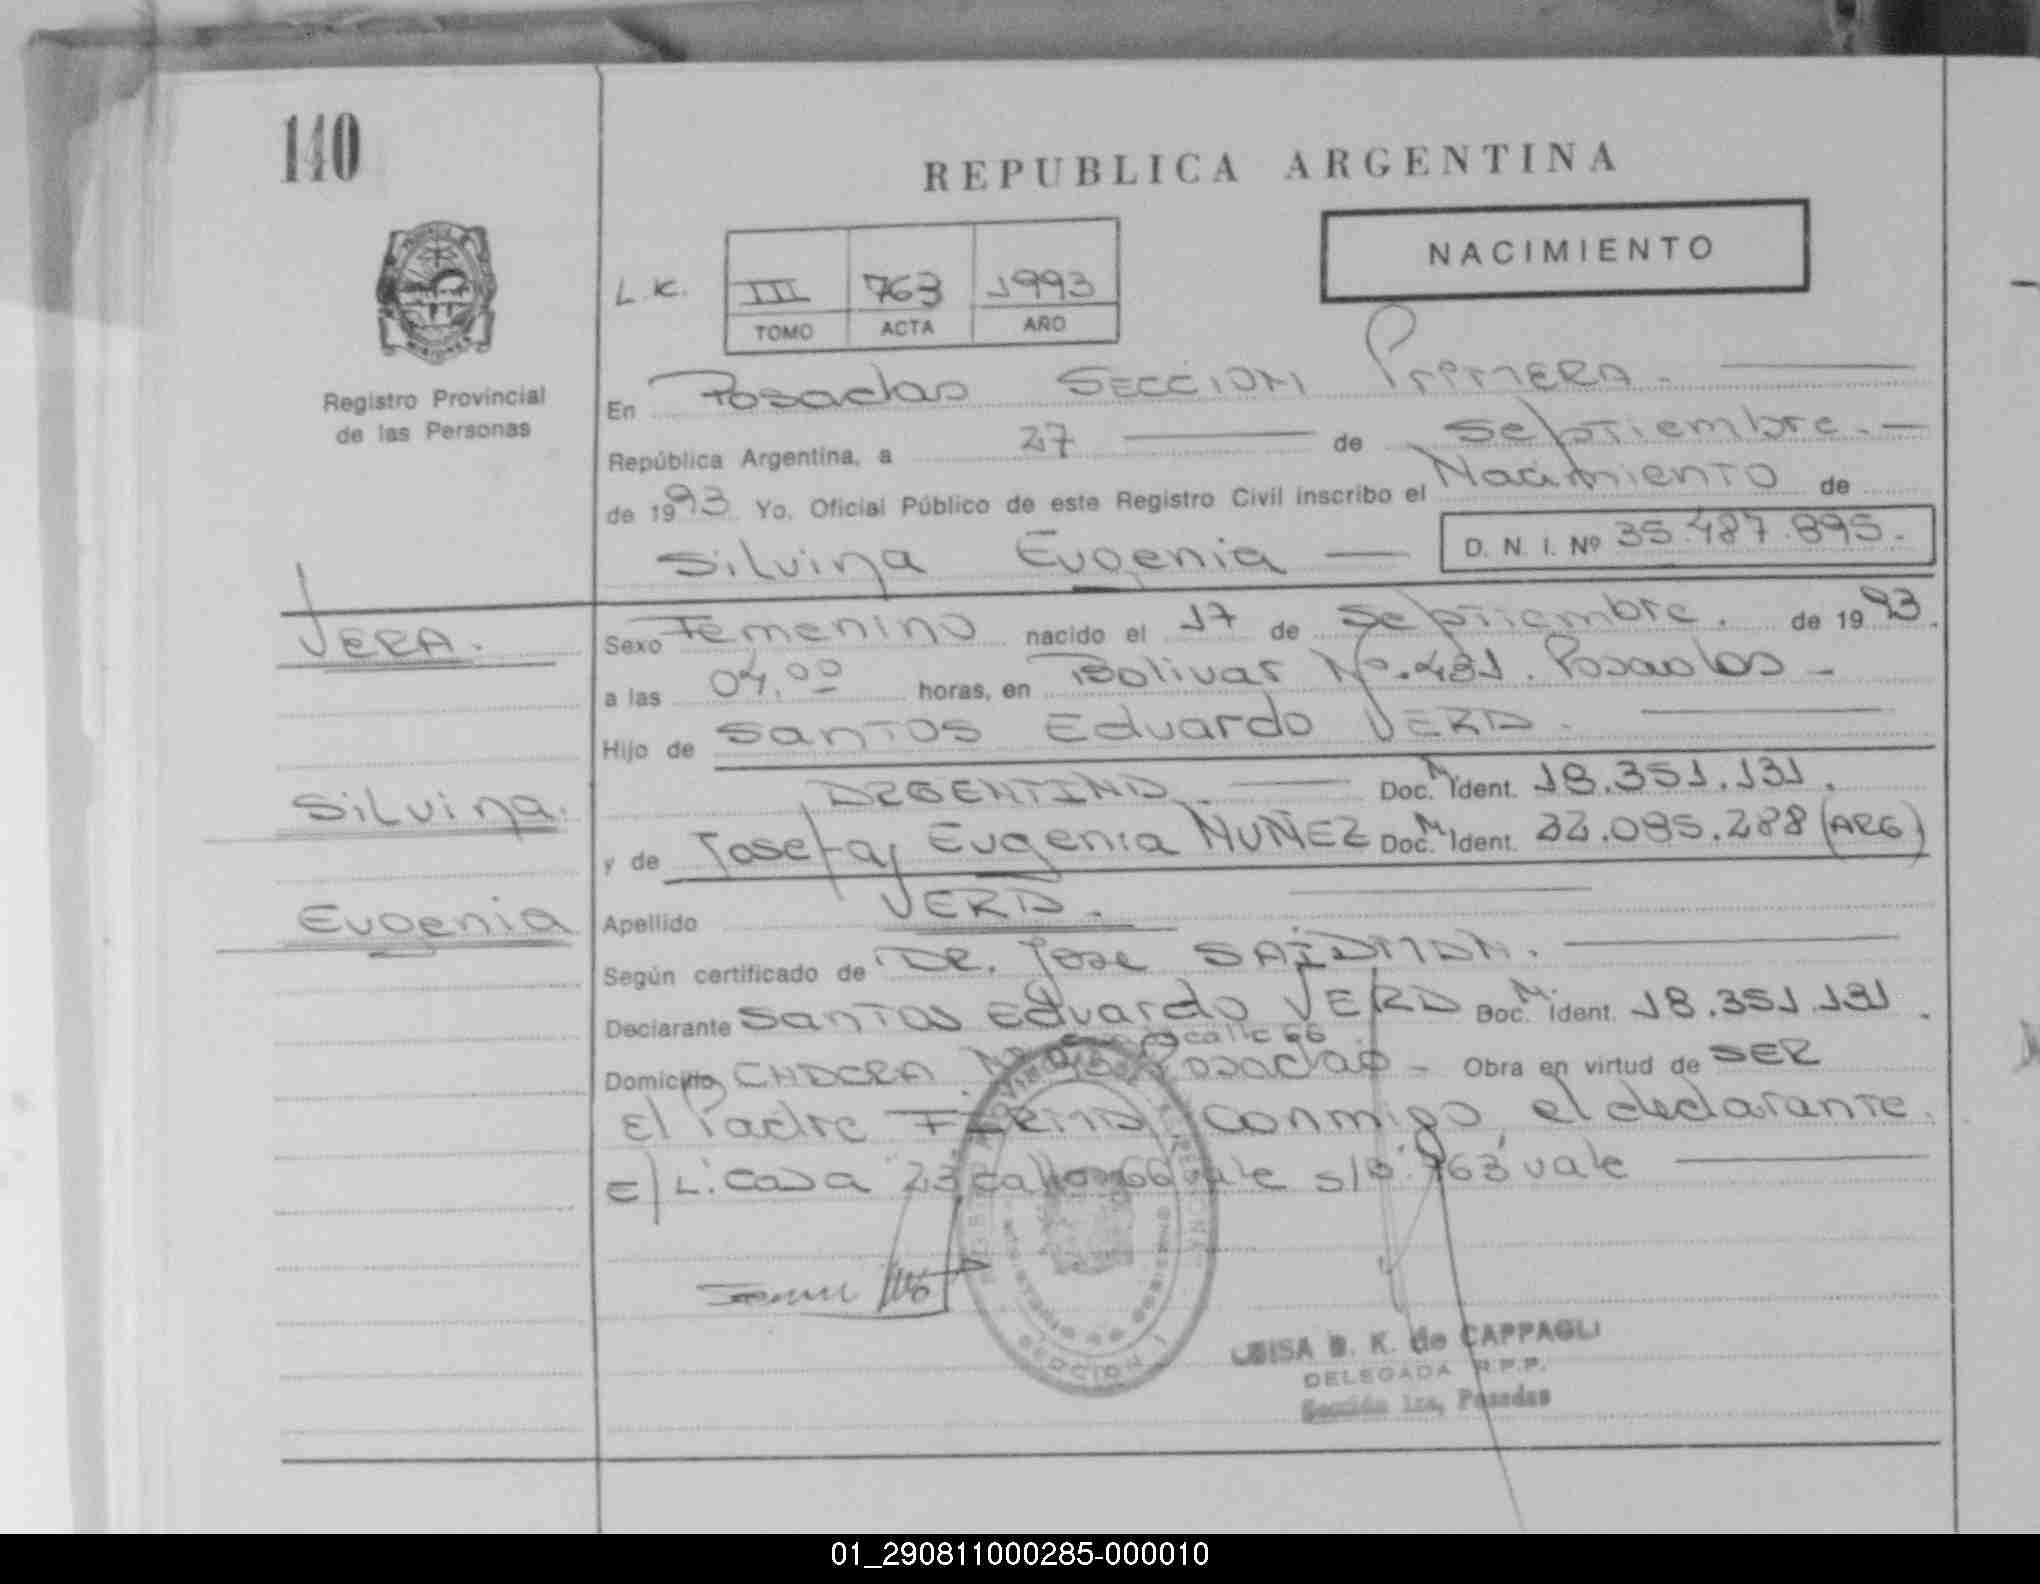 140
REPUBLICA ARGENTINA
NACIMIENTO
L.K. III 763 1993
TOMO ACTA AÑO
Registro Provincial
de las Personas
En Posadas SECCION PRIMERA.
República Argentina, a 27 de Septiembre.
de 1993 Yo, Oficial Público de este Registro Civil inscribo el Nacimiento de
Silvina Eugenia D. N. I. Nº 35.487.895.
VERA.
Sexo Femenino nacido el 17 de Septiembre. de 1993.
a las 04,00 horas, en Bolivar Nº.431. Posadas
Hijo de Santos Eduardo VERA.
Silvina.
ARGENTINA Doc. M. Ident. 18.351.131.
y de Josefa, Eugenia NUÑEZ Doc. M. Ident. 22.095.288 (ARG)
Eugenia
Apellido VERA.
Según certificado de DR. Jose SAIDMAN.
Declarante Santos Eduardo VERA Doc. M. Ident. 18.351.131.
calle 66
Domicilio CHACRA Posadas Obra en virtud de SER
El Padre FIRMA conmigo, el declarante.
E/L: casa 23 calle 66 vale s/p: 763 vale
REGISTRO PROVINCIAL DE LAS PERSONAS
SECCION 1
LUISA B. K. de CAPPAGLI
DELEGADA R.P.P.
Sección 1ra, Posadas
01_290811000285-000010